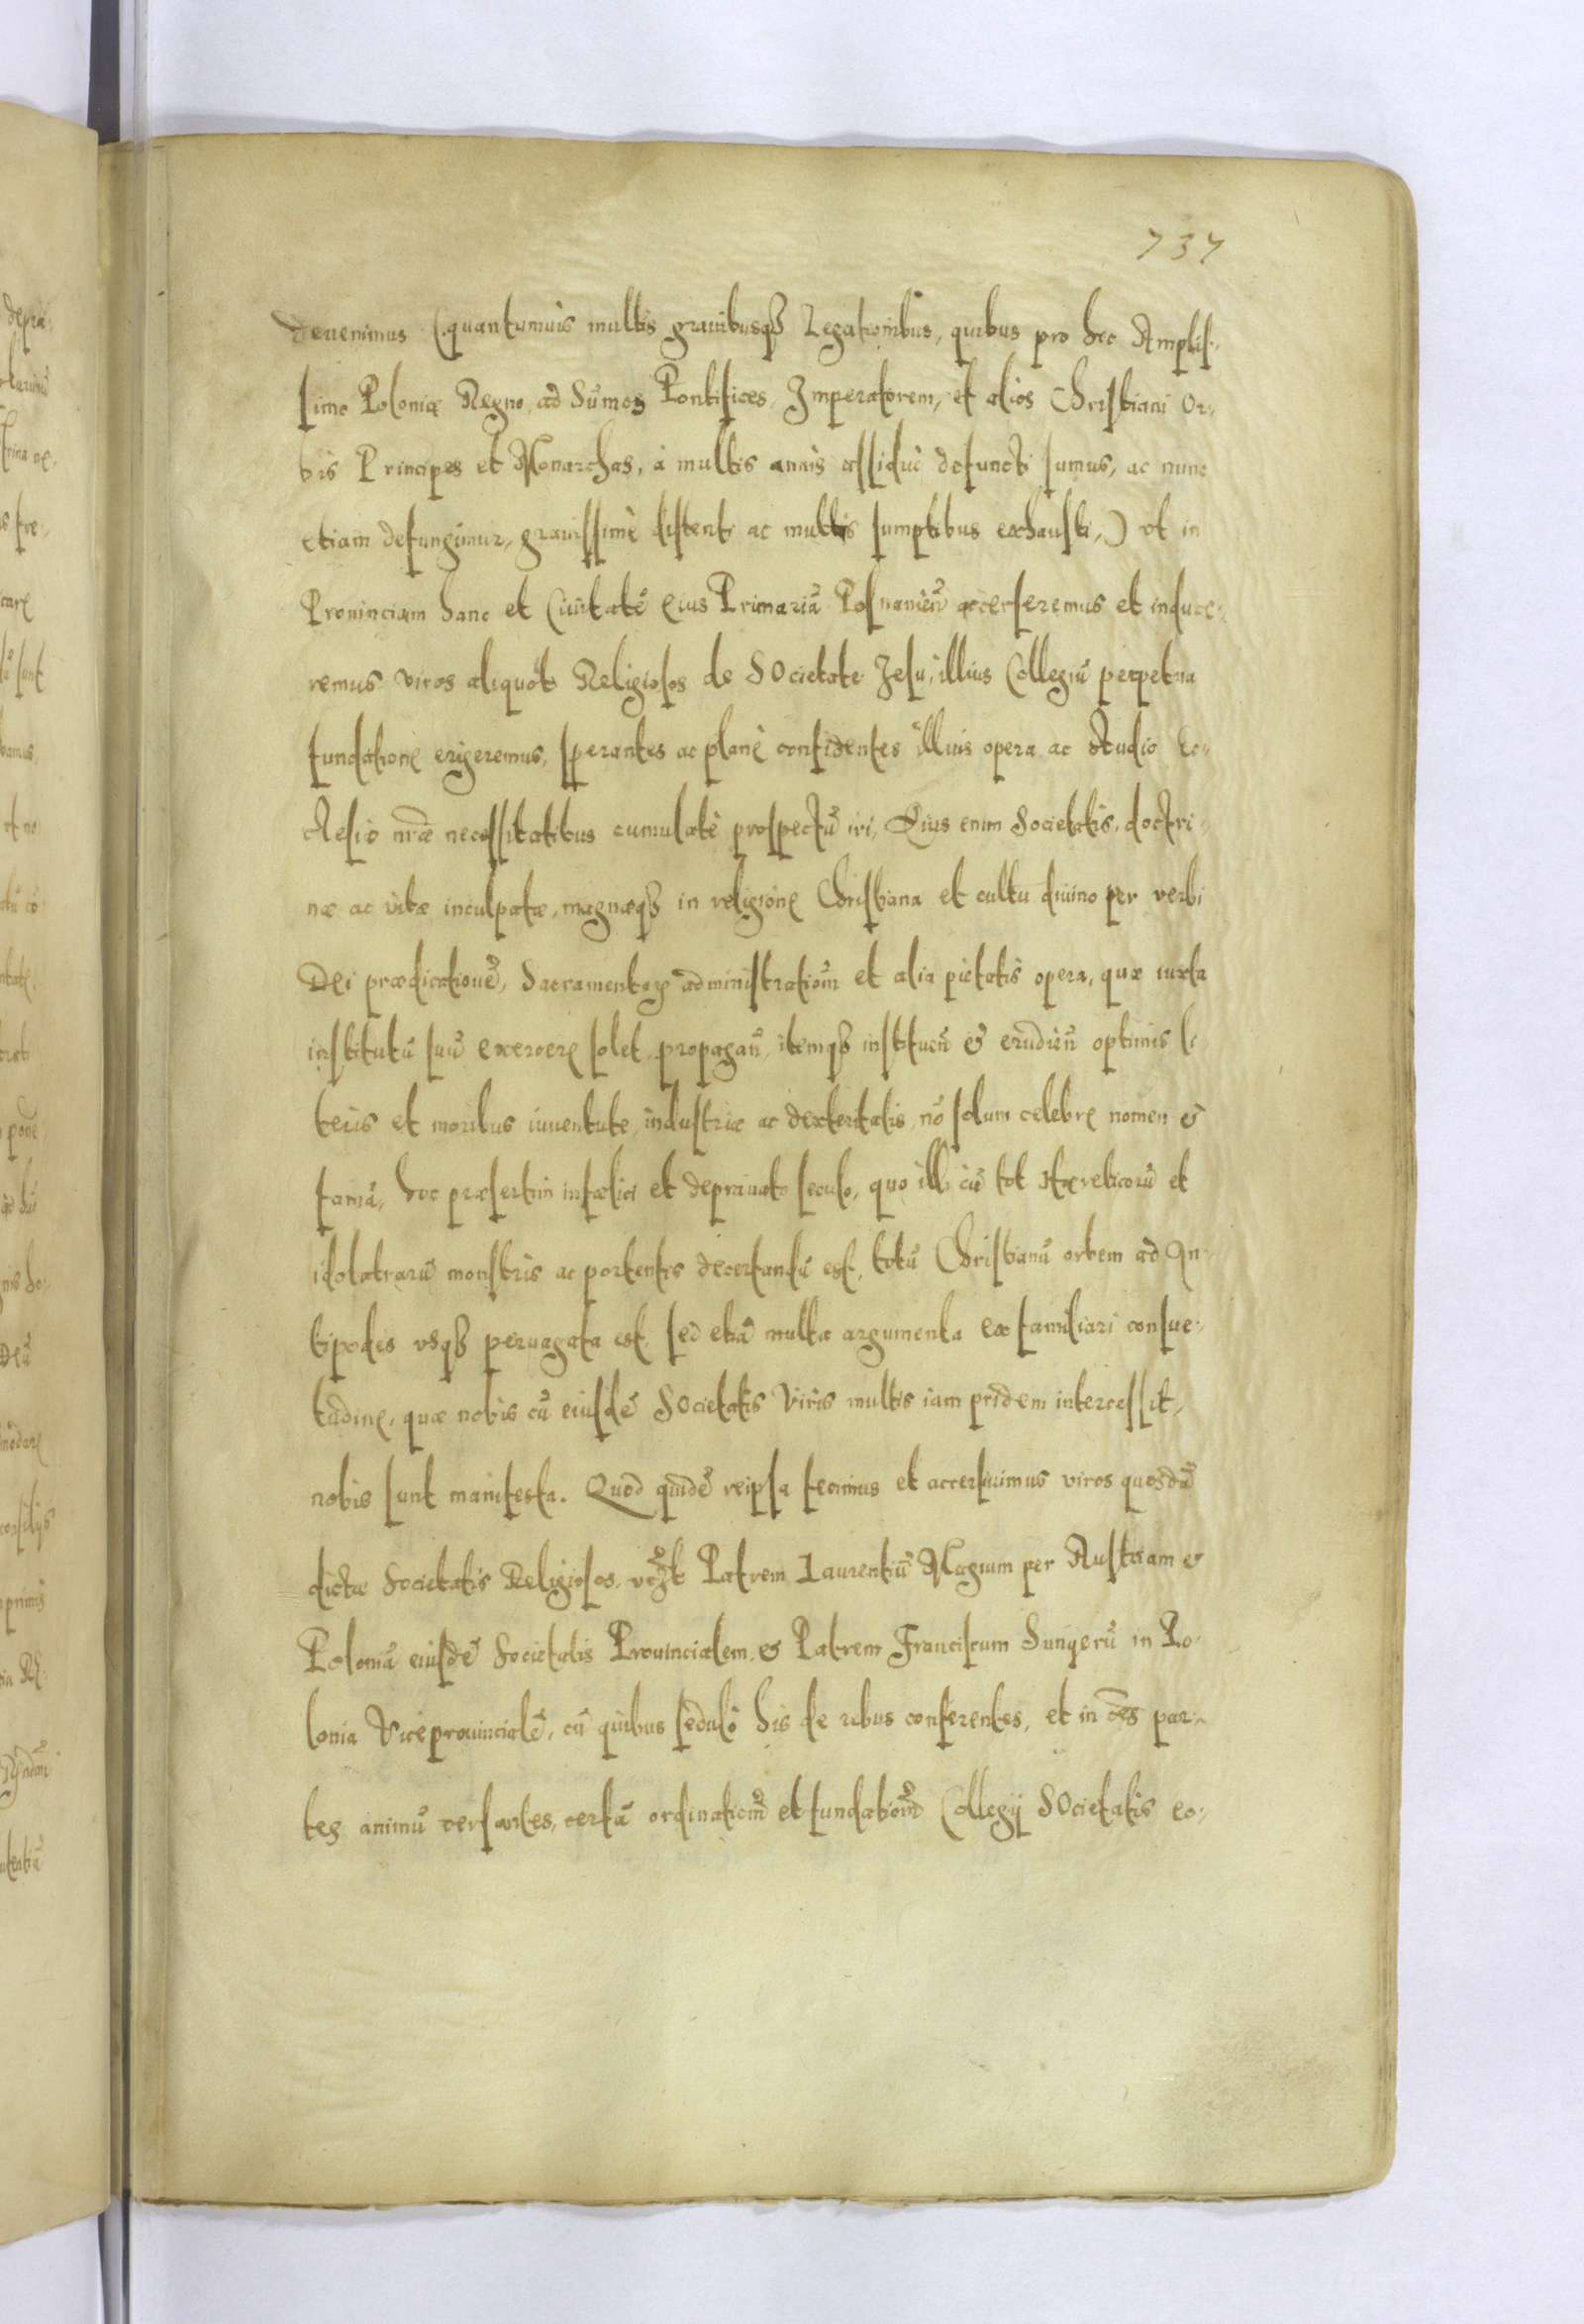 737
deuenimus (quantumuis multis grauibusqȝ Legationibus, quibus pro hoc Amplis-
simo Poloniæ Regno, ad Sūmos Pontifices, Imperatorem, et alios Christiani Or-
bis Principes et Monarchas, à multis annis assiduè defuncti sumus, ac nunc
etiam defungimur, grauissimè distenti ac multis sumptibus exhausti,) vt in
Prouinciam hanc et Ciuitatē eius Primariā Posnanieñ accerseremus et induce-
remus viros aliquot Religiosos de SOcietate Jesu, illius Collegiū perpetua
fundatione erigeremus, sperantes ac planè confidentes illius opera ac studio Ec-
clesiæ nr̄æ necessitatibus cumulatè prospectū iri, Eius enim Societatis, doctri-
næ ac vitæ inculpatæ, magnæqȝ in religione Christiana et cultu diuino per verbi
Dei prædicationē, Sacramentoꝝ administratiom̄ et alia pietatis opera, quæ iuxta
institutū suū exercere solet, propagañ, itemqȝ instituēn & erudieñ optimis li
teris et moribus iuuentute, industriæ ac dexteritatis, nō solum celebre nomen &
famā, hoc præsertim infælici et deprauato seculo, quo illi cū tot Hæreticorū et
idolatrarū monstris ac portentis decertandū est, totū Christianū orbem ad An-
tipodes vsqȝ peruagata est, sed etiā multa argumenta ex familiari consue-
tudine, quæ nobis cū eiusdē SOcietatis Viris multis iam pridem intercessit,
nobis sunt manifesta. Quod quidē reipsa fecimus et accersiuimus viros quosdā
dictæ Societatis Religiosos, vczt Patrem Laurentiū Magium per Austriam &
Poloniā eiusdē Societatis Prouincialem, & Patrem Franciscum Sunyerū in Po-
lonia Viceprouincialē, cū quibus sedulò his de rebus conferentes, et in oēs par-
tes animū versantes, certā ordinatiom̄ et fundatiom̄ Collegij SOcietatis eo-